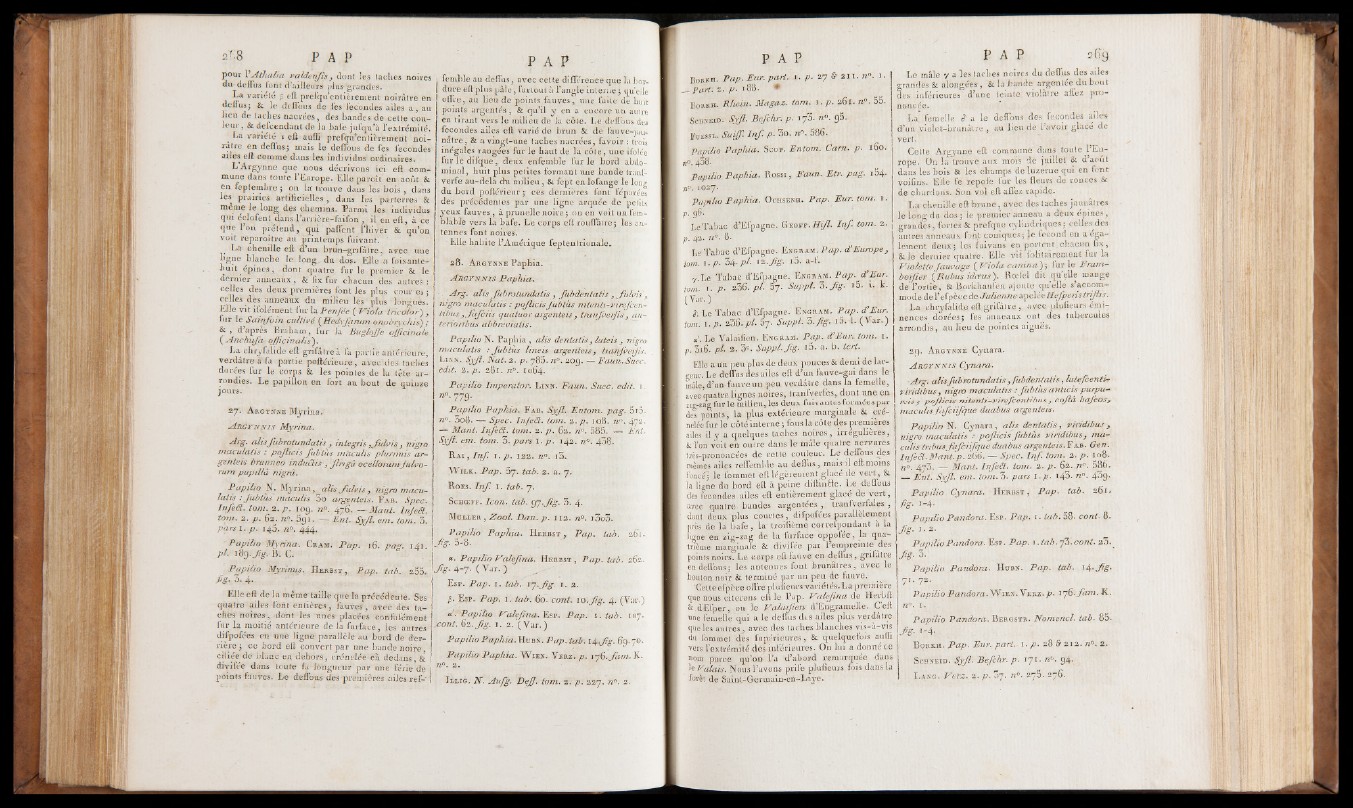 258 PAP
pour l'Athalia valdenſis, dont les taches noires
du deſſus ſont d'ailleurs plus grandes.
La variété γ eſt preſqu'entièrement noirâtre en
deſſus; & le deſſous de ſes ſecondes ailes a, au
lieu de taches nacrées, des bandes de cette cou-
leur, & deſcendant de la baſe juſqu'à l'extrémité.
La variété eſt auſſi preſqu'entièrement noi-
râtre en deſſus; mais le deſſous de ſes ſecondes
ailes eſt comme dans les individus ordinaires.
L'Argynne que nous décrivons ici eſt com-
mune dans toute l'Europe. Elle paroît en août &
en ſeptembre; on la trouve dans les bois, dans
les prairies artificielles, dans les parterres &
même le long des chemins. Parmi les individus
qui écloſent dans l'arrière-ſaiſon, il en eſt, à ce
que l'on prétend, qui paſſent l'hiver & qu'on
voit reparoître au printemps ſuivant.
La chenille eſt d'un brun-griſâtre, avec une
ligne blanche le long du dos. Elle a ſoixante-
huit épines, dont quatre ſur le premier & le
dernier anneaux, & ſix ſur chacun des autres :
celles des deux premières ſont les plus courtes;
celles des anneaux du milieu les plus longues.
Elle vit iſolément ſur la Penſée (Viola tricolor),
ſur le Sainfoin cultivé (Hedyſarum onobrychis);
&, d'après Braham, ſur la Bugloſſe officinale
(Anchuſa officinalis).
La chryſalide eſt griſâtre à ſa partie antérieure,
verdâtre à ſa partie poſtérieure, avec des taches
dorées ſur le corps & les pointes de la tête ar-
rondies. Le papillon en ſort au bout de quinze
jours.
27. Argynne Myrina.
Argynnis Myrina.
Arg. alis ſubrotundatis, integris, fulvis, nigro
maculatis : poſticis ſubtùs maculis plurimis ar-
genteis brunneo inductis, ſtrigâ ocellorum fulvo-
rum pupillâ nigrâ.
Papilio N. Myrina, alis fulvis, nigro macu-
latis : ſubtùs maculis 30 argenteis. Fab. Spec.
Inſect. tom. 2. p. 109. n°. 476. — Mant. Inſect.
tom. 2. p. 62. n°. 591. — Ent. Syſt. em. tom. 3.
pars 1. p. 145. n°. 444.
Papilio Myrina. Cram. Pap. 16. pag. 141.
pl. 189. fig. B. C.
Papilio Myrinus. Herbst, Pap. tab. 255.
fig. 3. 4.
Elle eſt de la même taille que la précédente. Ses
quatre ailes ſont entières, fauves, avec des ta-
ches noires, dont les unes placées confuſément
ſur la moitié antérieure de la ſurface, les autres
diſpoſées en une ligne parallèle au bord de der-
rière; ce bord eſt couvert par une bande noire,
ciliée de blanc en dehors, crénelée en dedans, &
diviſée dans toute ſa longueur par une ſérie de
points fauves. Le deſſous des premières ailes reſ-
PAP
ſemble au deſſus, avec cette différence que la bor-
dure eſt plus pâle, ſurtout à l'angle interne; qu'elle
offre, au lieu de points fauves, une ſuite de huit
points argentés, & qu'il y en a encore un autre
en tirant vers le milieu de la côte. Le deſſous des
ſecondes ailes eſt varié de brun & de fauve-jau-
nâtre, & a vingt-une taches nacrées, ſavoir : trois
inégales rangées ſur le haut de la côte, une iſolée
ſur le diſque, deux enſemble ſur le bord abdo-
minal, huit plus petites formant une bande tranſ-
verſe au-delà du milieu, & ſept en loſange le long
du bord poſtérieur; ces dernières ſont ſéparées
des précédentes par une ligne arquée de petits
yeux fauves, à prunelle noire; on en voit un ſem-
blable vers la baſe. Le corps eſt rouſſâtre; les an-
tennes ſont noires.
Elle habite l'Amérique ſeptentrionale.
28. Argynne Paphia.
Argynnis Paphia.
Arg. alis ſubrotundatis, ſubdentatis, fulvis,
nigro maculatis : poſticis ſubtùs nitenti-vireſcen-
tibus, faſciis quatuor argenteis, tranſverſis, an-
terioribus abbreviatis.
Papilio N. Paphia, alis dentatis, luteis, nigro
maculatis : ſubtùs lineis argenteis, tranſverſis.
Linn. Syſt. Nat. 2. p. 785. n°. 209. — Faun. Suec.
edit. 2. p. 281. n°. 1064.
Papilio Imperator. Linn. Faun. Suec. edit. 1.
n°. 779.
Papilio Paphia. Fab. Syſt. Entom. pag. 516.
n°. 308. — Spec. Inſect. tom. 2. p. 108. n°. 472.
— Mant. Inſect. tom. 2. p. 62. n°. 585. — Ent.
Syſt. em. tom. 3. pars 1. p. 142. n°. 438.
Rai, Inſ. 1. p. 122. n°. 15.
Wilk. Pap. 57. tab. 2. a. 7.
Roes. Inſ. 1. tab. 7.
Schæff. Icon. tab. 97. fig. 3. 4.
Muller, Zool. Dan. p. 112. n°. 1303.
Papilio Paphia. Herbst, Pap. tab. 261.
fig. 5-8.
α. Papilio Valeſina. Herbst, Pap. tab. 262.
fig. 4-7. (Var.)
Esp. Pap. 1. tab. 17. fig. 1. 2.
β. Esp. Pap. 1. tab. 60. cont. 10. fig. 4. (Var.)
α. Papilio Valeſina. Esp. Pap. 1. tab. 107.
cont. 62. fig. 1. 2. (Var.)
Papilio Paphia. Hubn. Pap. tab. 14. fig. 69. 70.
Papilio Paphia. Wien. Verz. p. 176. fam. K.
n°. 2.
Illig. N. Ausg. Deſſ. tom. 2. p. 227. n°. 2.
PAP
Borkh. Pap. Eur. part. 1. p. 27 & 211. n°. 1.
— Part. 2. p. 188.
Borkh. Rhein. Magaz. tom. 1. p. 261. n°. 55.
Schneid. Syſt. Beſchr. p. 173. n°. 95.
Fuessl. Suiſſ. Inſ. p. 30. n°. 586.
Papilio Paphia. Scop. Entom. Carn. p. 160.
n°. 438.
Papilio Paphia. Rossi, Faun. Etr. pag. 154.
n°. 1027.
Papilio Paphia. Ochsenh. Pap. Eur. tom. 1.
p. 96.
Le Tabac d'Eſpagne. Geoff. Hiſt. Inſ. tom. 2.
p. 42. n°. 8.
Le Tabac d'Eſpagne. Engram. Pap. d'Europe,
tom. 1. p. 34. pl. 12. fig. 15. a-f.
γ. Le Tabac d'Eſpagne. Engram. Pap. d'Eur.
tom. 1. p. 236. pl. 57. Suppl. 3. fig. 15. i. k.
(Var.)
δ. Le Tabac d'Eſpagne. Engram. Pap. d'Eur.
tom. 1. p. 236. pl. 57. Suppl. 3. fig. 15. l. (Var.)
α. Le Valaiſien. Engram. Pap. d'Eur. tom. 1.
p. 316. pl. 2. 3e. Suppl. fig. 15. a. b. tert.
Elle a un peu plus de deux pouces & demi de lar-
geur. Le deſſus des ailes eſt d'un fauve-gai dans le
mâle, d'un fauve un peu verdâtre dans la femelle,
avec quatre lignes noires, tranſverſes, dont une en
zig-zag ſur le milieu, les deux ſuivantes formées par
des points, la plus extérieure marginale & cré-
nelée ſur le côté interne; ſous la côte des premières
ailes il y a quelques taches noires, irrégulières,
& l'on voit en outre dans le mâle quatre nervures
très-prononcées de cette couleur. Le deſſous des
mêmes ailes reſſemble au deſſus, mais il eſt moins
foncé; le ſommet eſt légèrement glacé de vert, &
la ligne du bord eſt à peine diſtincte. Le deſſous
des ſecondes ailes eſt entièrement glacé de vert,
avec quatre bandes argentées, tranſverſales,
dont deux plus courtes, diſpoſées parallèlement
près de la baſe, la troiſième correſpondant à la
ligne en zig-zag de la ſurface oppoſée, la qua-
trième marginale & diviſée par l'empreinte des
points noirs. Le corps eſt fauve en deſſus, griſâtre
en deſſous; les antennes ſont brunâtres, avec le
bouton noir & terminé par un peu de fauve.
Cette eſpèce offre pluſieurs variétés. La première
que nous citerons eſt le Pap. Valeſina de Herbſt
& d'Eſper, ou le Valaiſien d'Engramelle. C'eſt
une femelle qui a le deſſus des ailes plus verdâtre
que les autres, avec des taches blanches vis-à-vis
du ſommet des ſupérieures, & quelquefois auſſi
vers l'extrémité des inférieures. On lui a donné ce
nom parce qu'on l'a d'abord remarquée dans
le Valais. Nous l'avons priſe pluſieurs fois dans la
forêt de Saint-Germain-en-Laye.
PAP 269
Le mâle γ a les taches noires du deſſus des ailes
grandes & alongées, & la bande argentée du bout
des inférieures d'une teinte violâtre aſſez pro-
noncée.
La femelle δ a le deſſous des ſecondes ailes
d'un violet-brunâtre, au lieu de l'avoir glacé de
vert.
Cette Argynne eſt commune dans toute l'Eu-
rope. On la trouve aux mois de juillet & d'août
dans les bois & les champs de luzerne qui en ſont
voiſins. Elle ſe repoſe ſur les fleurs de ronces &
de chardons. Son vol eſt aſſez rapide.
La chenille eſt brune, avec des taches jaunâtres
le long du dos; le premier anneau a deux épines,
grandes, fortes & preſque cylindriques; celles des
autres anneaux ſont coniques; le ſecond en a éga-
lement deux; les ſuivans en portent chacun ſix,
& le dernier quatre. Elle vit ſolitairement ſur la
Violette ſauvage (Viola canina); ſur le Fram-
boiſier (Rubus idæus). Rœſel dit qu'elle mange
de l'ortie, & Borkhauſen ajoute qu'elle s'accom-
mode de l'eſpèce de Julienne apelée Heſperis triſtis.
La chryſalide eſt griſâtre, avec pluſieurs émi-
nences dorées; ſes anneaux ont des tubercules
arrondis, au lieu de pointes aiguës.
29. Argynne Cynara.
Argynnis Cynara.
Arg. alis ſubrotundatis, ſubdentatis, luteſcenti-
viridibus, nigro maculatis : ſubtùs anticis purpu-
reis, poſticis nitenti-vireſcentibus, coſtâ baſeos,
maculis faſciiſque duabus argenteis.
Papilio N. Cynara, alis dentatis, viridibus,
nigro maculatis : poſticis ſubtùs viridibus, ma-
culis tribus, faſciiſque duabus argenteis. Fab. Gen.
Inſect. Mant. p. 266. — Spec. Inſ. tom. 2. p. 108.
n°. 473. — Mant. Inſect. tom. 2. p. 62. n°. 586.
— Ent. Syſt. em. tom. 3. pars 1. p. 143. n°. 439.
Papilio Cynara. Herbst, Pap. tab. 261.
fig. 1-4.
Papilio Pandora. Esp. Pap. 1. tab. 58. cont. 8.
fig. 1. 2.
Papilio Pandora. Esp. Pap. 1. tab. 73. cont. 23.
fig. 3.
Papilio Pandora. Hubn. Pap. tab. 14. fig.
71. 72.
Papilio Pandora. Wien. Verz. p. 176. fam. K.
n°. 1.
Papilio Pandora. Bergstr. Nomencl. tab. 85.
fig. 1-4.
Borkh. Pap. Eur. part. 1. p. 28 & 212. n°. 2.
Schneid. Syſt. Beſchr. p. 171. n°. 94.
Lang. Verz. 2. p. 37. n°. 275. 276.